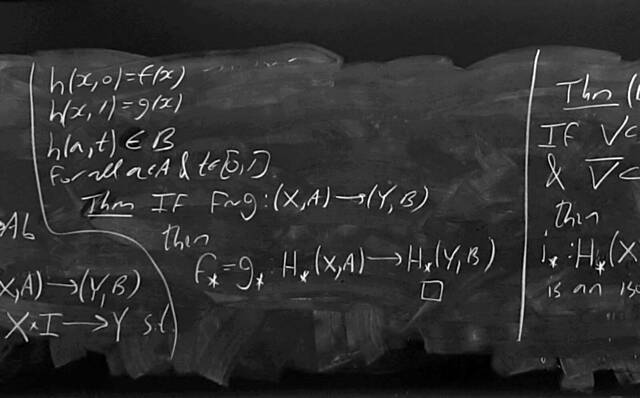 h(x,0)=f(x)
h(x,1)=g(x)
h(a,t) ∈ B
for all a∈A & t∈[0,1].
Thm If f~g:(X,A)→(Y,B)
then
f_*=g_* H_*(X,A)→H_*(Y,B)
□
→Ab
X,A)→(Y,B)
X×I→Y s.t.
Thm (
If V⊂
& V̅⊂
then
i_*:H_*(X
is an iso